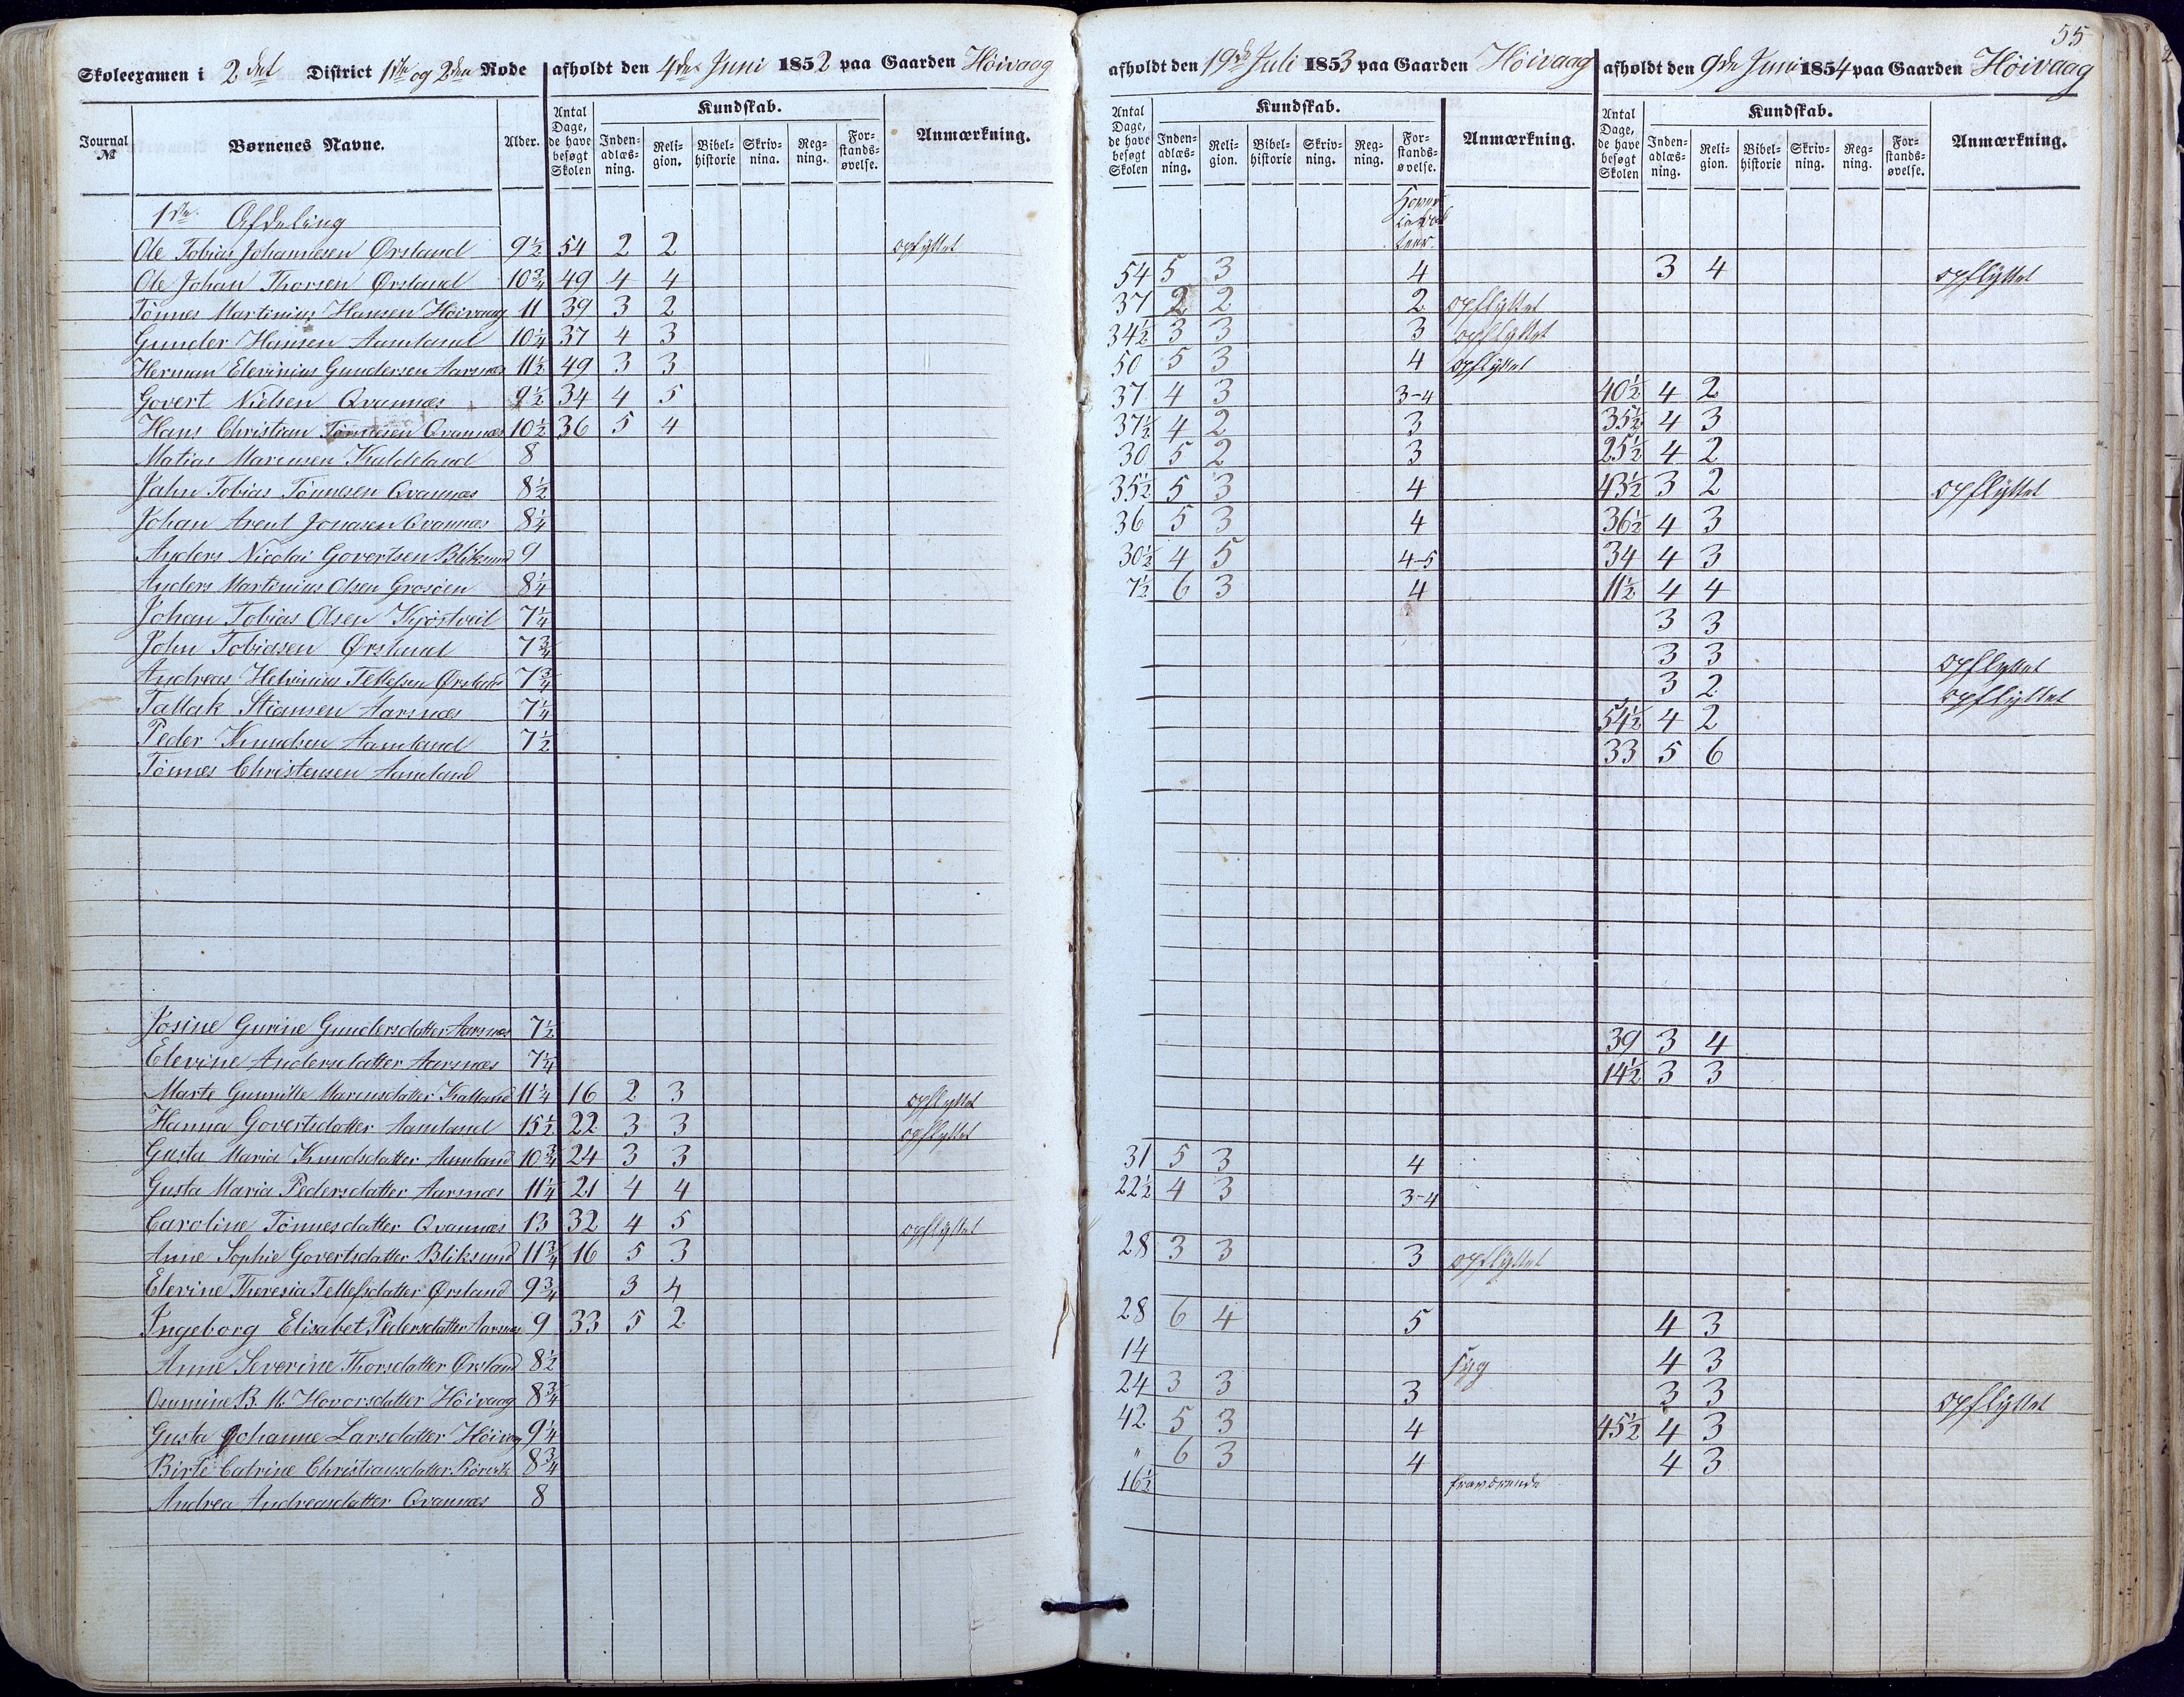 55
Skoleexamen i 2det District 1ste og 2den Rode afholdt den 4de Juni 1852 paa Gaarden Höivaag
Journal № Børnenes Navne. Alder. Antal Dage, de have besøgt Skolen Kundskab. Anmærkning.
Indenadlæsning. Religion. Bibelhistorie Skrivning. Regning. Forstandsøvelse.
1ste Afdeling
Ole Tobias Johannesen Ørsland 9½ 54 2 2 opflyttet
Ole Johan Thorsen Ørsland 10¾ 49 4 4
Tönnes Martinius Hansen Höivaag 11 39 3 2
Gunder Hansen Aamland 10¼ 37 4 3
Herman Elevinius Gundersen Aarsnæs 11½ 49 3 3
Govert Nielsen Qvannæs 9½ 34 4 5
Hans Christian Tönnesen Qvannæs 10½ 36 5 4
Matias Marcusen Kaldeland 8
Jahn Tobias Tönnesen Qvannæs 8½
Johan Arent Jonasen Qvannæs 8¼
Anders Nicolai Govertsen Bliksund 9
Anders Martinius Olsen Grosöen 8¼
Johan Tobias Olsen Kjöstveit 7¼
John Tobiasen Ørsland 7¾
Andreas Helvinius Tellefsen Ørsland 7¾
Tallak Stiansen Aarsnæs 7¼
Peder Knudsen Aamland 7½
Tönnes Christensen Aamland
Josine Gurine Gundersdatter Aarsnæs 7½
Elevine Andersdatter Aarsnæs 7¼
Marte Gunnille Marcusdatter Kalland 11¼ 16 2 3 opflyttet
Hanna Govertsdatter Aamland 15½ 22 3 3 opflyttet
Gusta Maria Knudsdatter Aamland 10¾ 24 3 3
Gusta Maria Pedersdatter Aarsnæs 11¼ 21 4 4
Caroline Tönnesdatter Qvannæs 13 32 4 5 opflyttet
Anne Sophie Govertsdatter Bliksund 11¾ 16 5 3
Elevine Theresia Tellefsdatter Ørsland 9¾ 3 4
Ingeborg Elisabet Pedersdatter Aarsnæs 9 33 5 2
Anne Severine Thorsdatter Ørsland 8½
Ommine B. M. Hovorsdatter Höivaag 8¾
Gusta Johanne Larsdatter Höivaag 9¼
Birte Catrine Christiansdatter 8¾
Andrea Andreasdatter Qvannæs 8
afholdt den 19de Juli 1853 paa Gaarden Höivaag afholdt den 9de Juni 1854 paa Gaarden Höivaag
Antal Dage, de have besøgt Skolen Kundskab. Anmærkning. Antal Dage, de have besøgt Skolen Kundskab. Anmærkning.
Indenadlæsning. Religion. Bibelhistorie Skrivning. Regning. Forstandsøvelse. Indenadlæsning. Religion. Bibelhistorie Skrivning. Regning. Forstandsøvelse.
54 5 3 4 3 4 opflyttet
37 2 2 2 opflyttet
34½ 3 3 3 opflyttet
50 5 3 4 opflyttet
37 4 3 3-4 40½ 4 2
37½ 4 2 3 35½ 4 3
30 5 2 3 25½ 4 2
35½ 5 3 4 43½ 3 2 opflyttet
36 5 3 4 36½ 4 3
30½ 4 5 4-5 34 4 3
7½ 6 3 4 11½ 4 4
3 3
3 3 opflyttet
3 2 opflyttet
54½ 4 2
33 5 6
39 3 4
14½ 3 3
31 5 3 4
22½ 4 3 3-4
28 3 3 3 opflyttet
28 6 4 5 4 3
14 syg 4 3
24 3 3 3 3 3 opflyttet
42 5 3 4 45½ 4 3
" 6 3 4 4 3
16½ fraværende